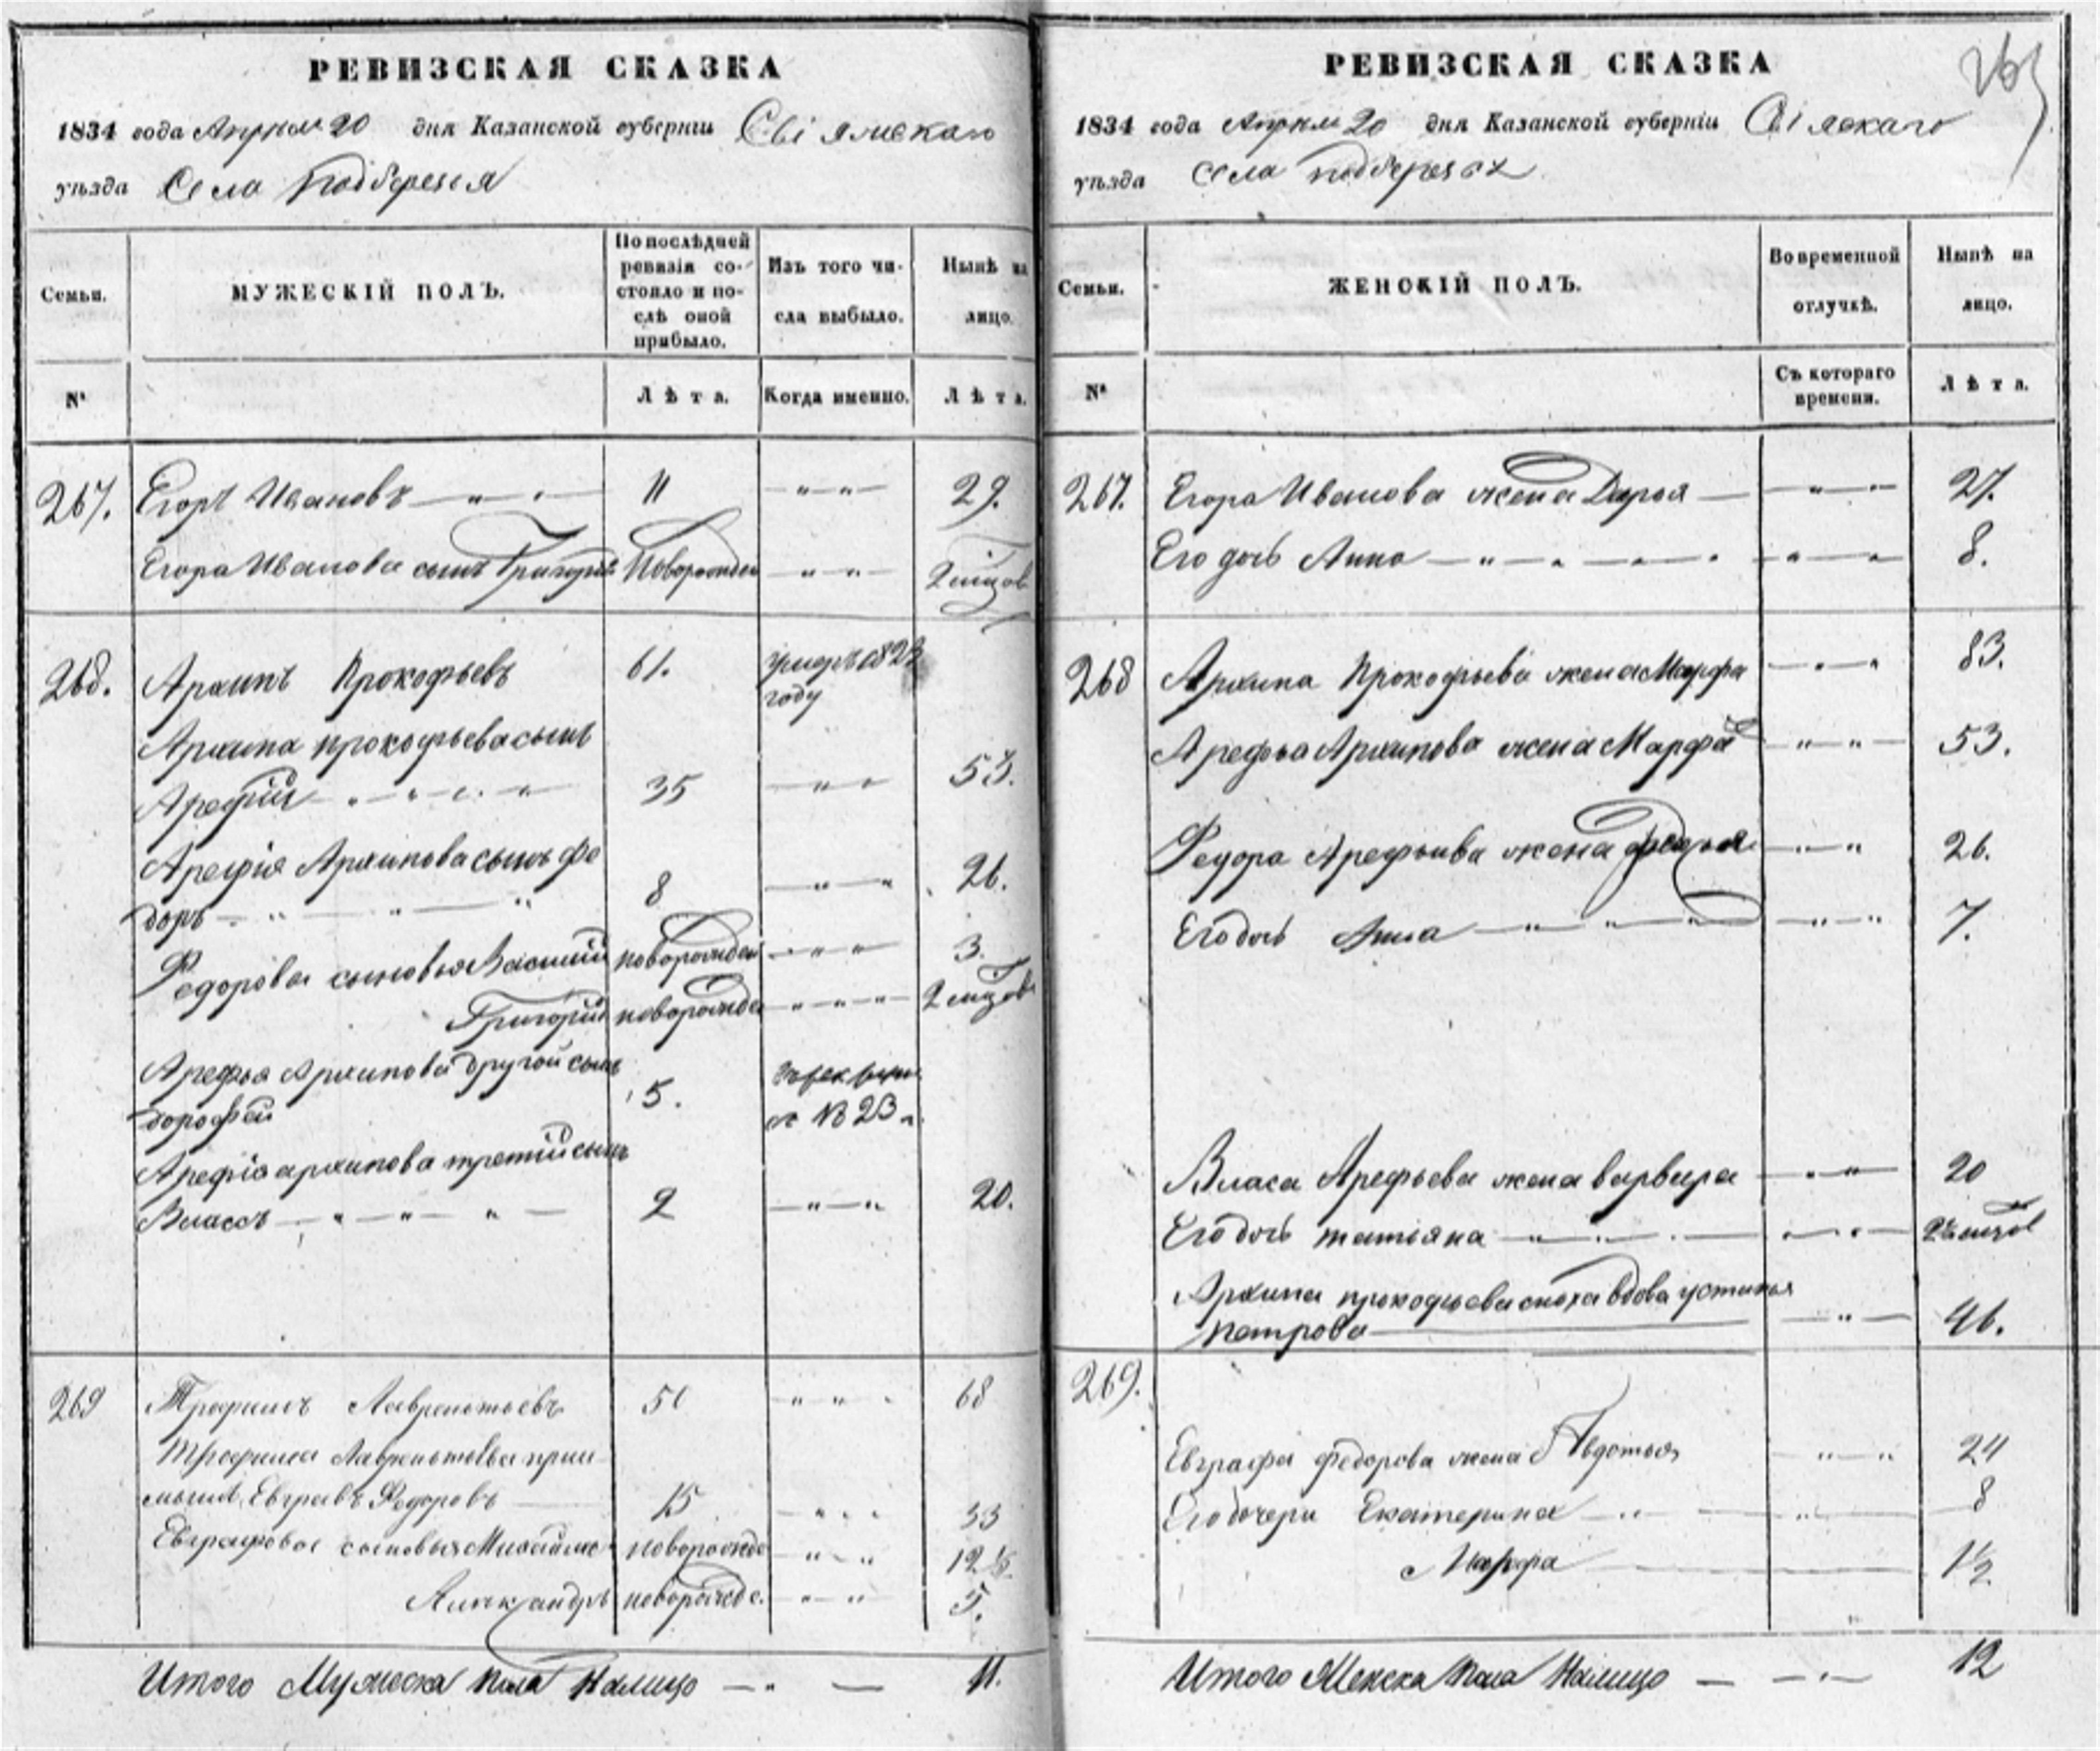 РЕВИЗСКАЯ СКАЗКА
1834 года Апреля 20 дня Казанской губерніи Свіяжскаго
уѣзда Села Подберезья
Семьи.
МУЖЕСКІЙ ПОЛЪ.
По послѣдней ревизіи состояло и послѣ оной прибыло.
Изъ того числа выбыло.
Нынѣ на лицо.
№
Лѣта.
Когда именно.
Лѣта.
267. Егоръ Ивановъ 11 29.
Егора Иванова сынъ Григорій новорожден 2 мцов
268. Архипъ Прокофьевъ 61. году
Архипа прокофьева сынъ
Арефій 35 53.
Арефія Архипова сынъ фе
доръ 8 26.
Федоровы сыновья Василий новорожден 3.
Григорий новорожден 2 мцов
Арефья Архипова другой сынъ
дорофей 5.
Арефія архипова третій сынъ
Власъ 2 20.
269 Трофимъ Лаврентьевъ 50 68
Трофима Лаврентьева прии
мышъ Евграфъ Федоровъ 15 33
Евграфовы сыновья Михайло новорожде 12 ½
Александръ новорожде. 5.
Итого Мужеска пола Налицо 11.
РЕВИЗСКАЯ СКАЗКА
1834 года Апреля 20 дня Казанской губерніи
уѣзда Села подберезья
Семьи.
ЖЕНСКІЙ ПОЛЪ.
Во временной отлучкѣ.
Нынѣ на лицо.
№
Съ котораго времени.
Лѣта.
267. Егора Иванова жена Дарья 27.
Его дочь Анна 8.
268 Архипа Прокофьева жена Марфа 83.
Арефья Архипова жена Марфа 53.
Федора Арефьева жена 26.
Его дочь Анна 7.
Власа Арефьева жена варвара 20
Его дочь татьяна мцов
Архипа прокофьева сноха вдова устинья
петрова 46.
269.
Евграфа федорова жена Авдотья 24
Его дочери Екатерина 8
Марфа 1½
Итого Женска пола Налицо 12